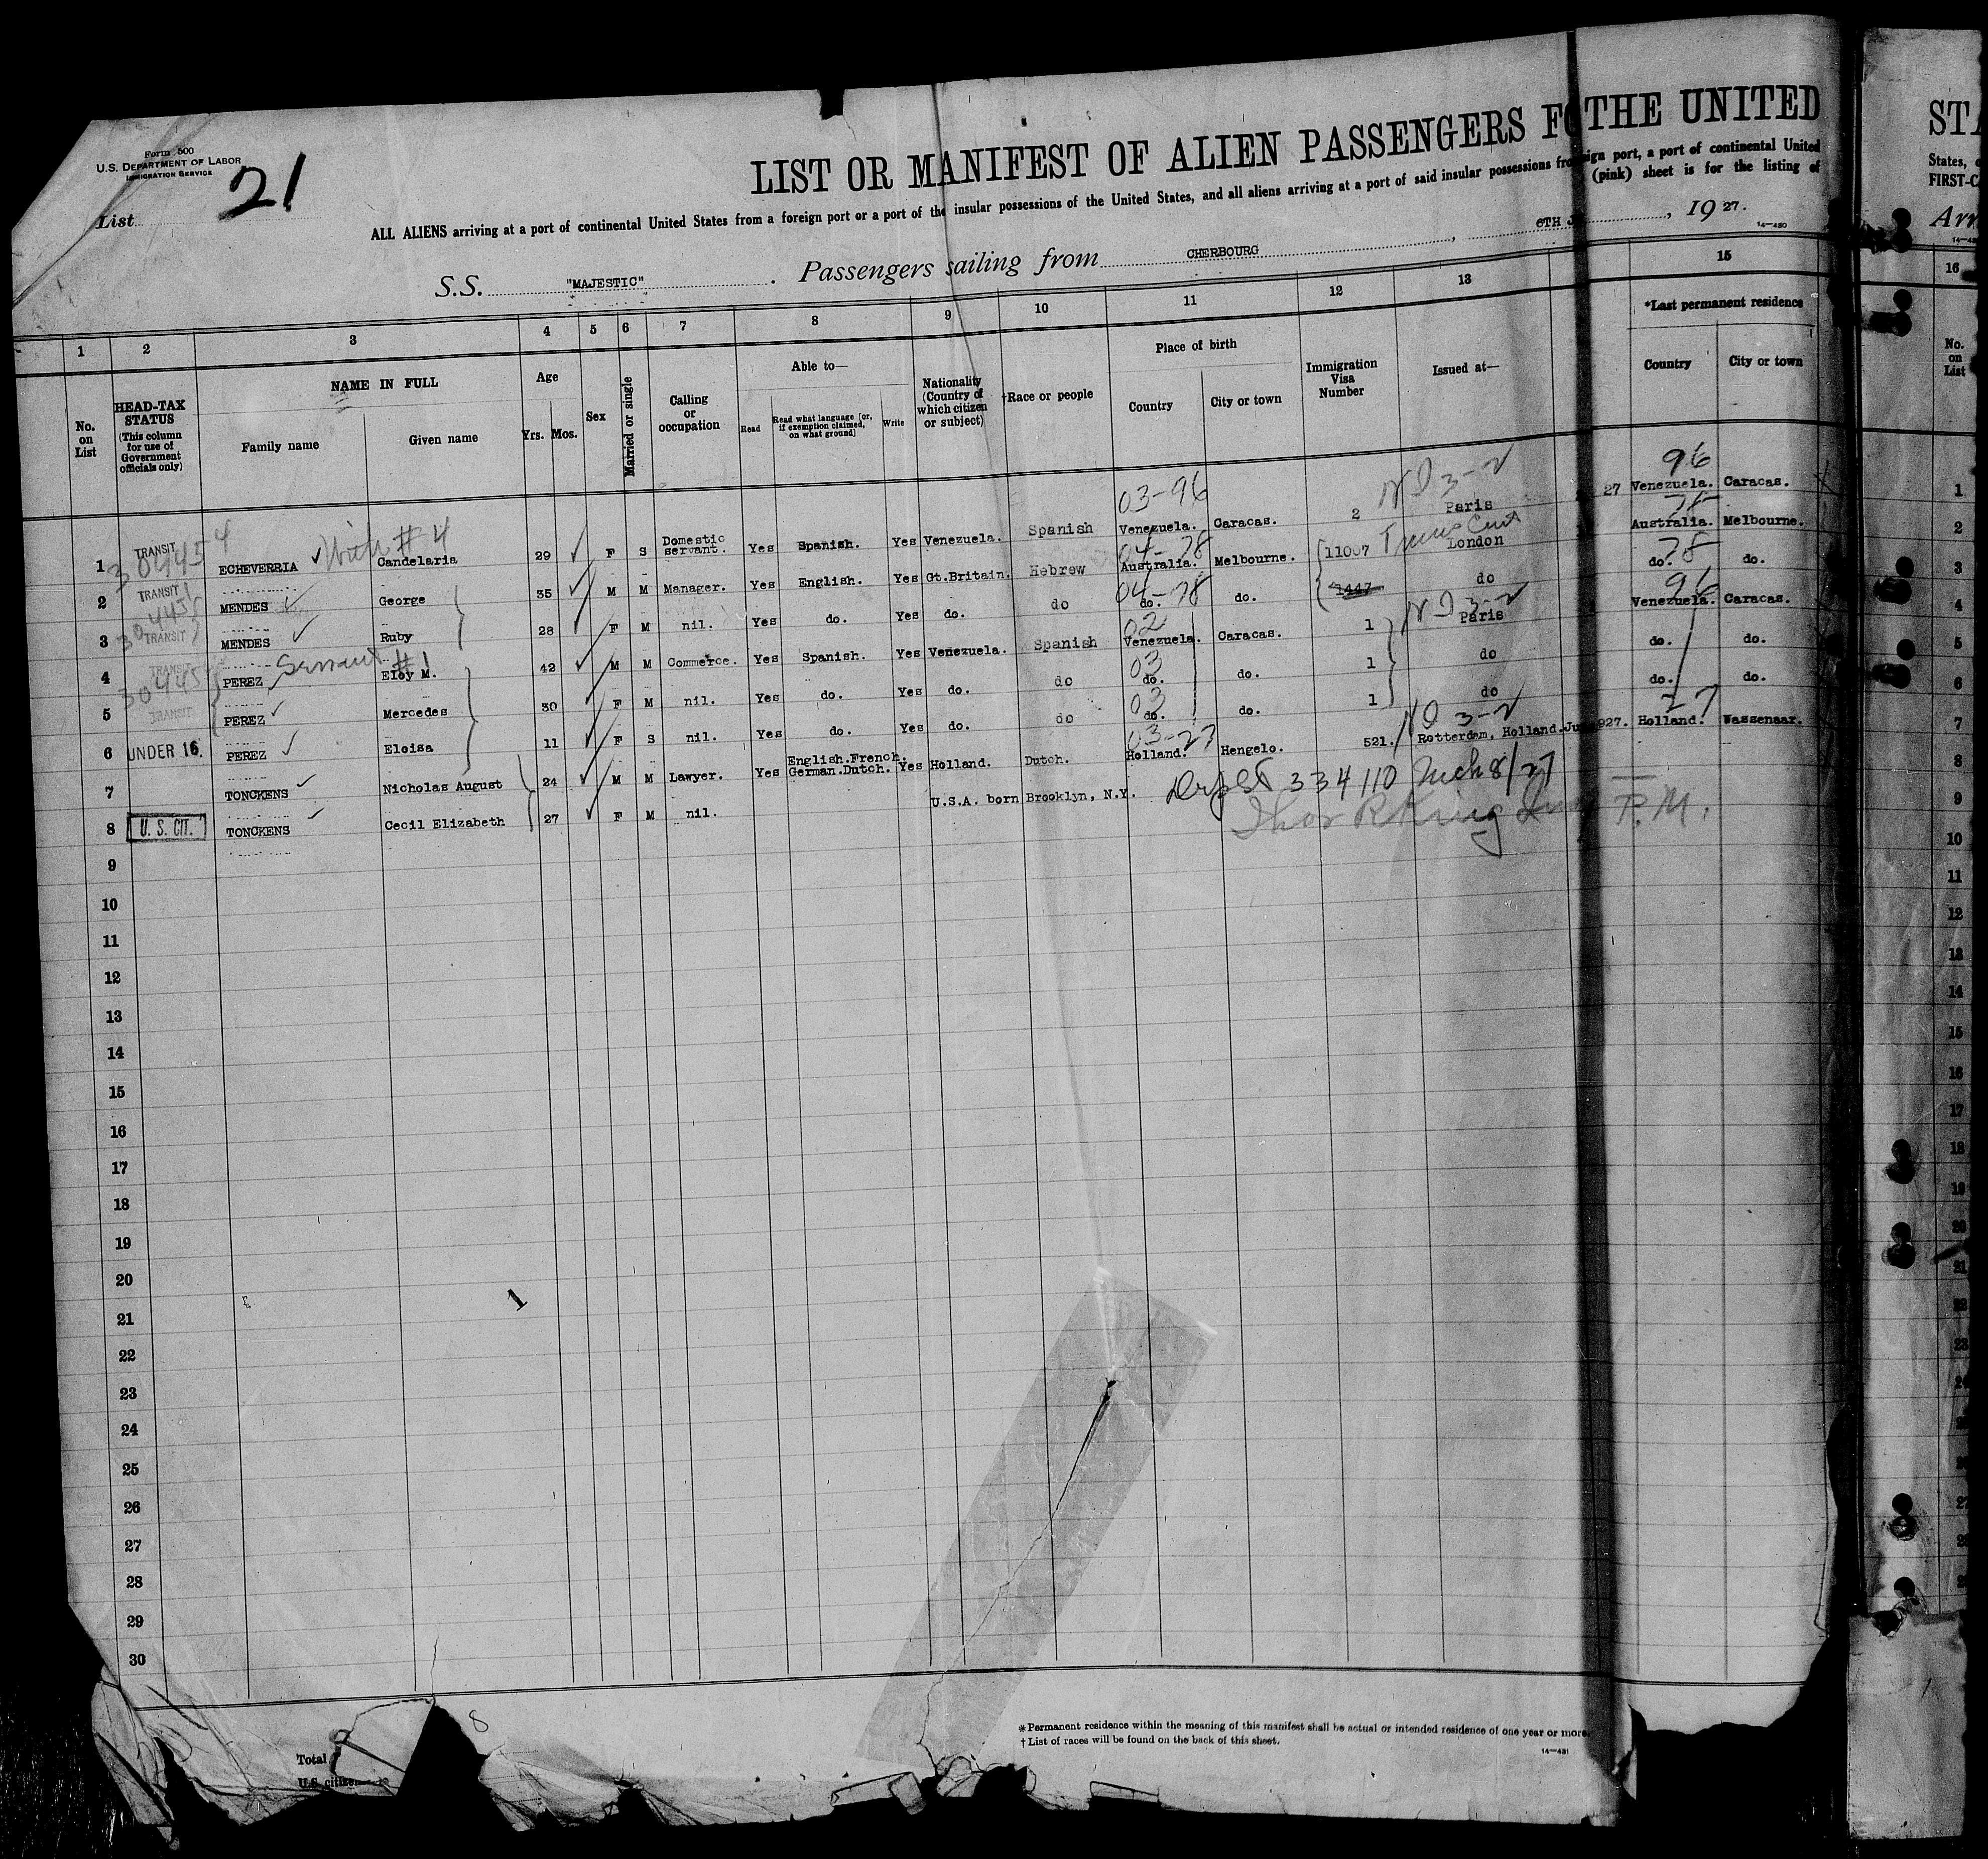 Form 500
U.S. DEPARTMENT OF LABOR
IMMIGRATION SERVICE
List 21
LIST OR MANIFEST OF ALIEN PASSENGERS FO THE UNITED
ALL ALIENS arriving at a port of continental United States from a foreign port or a port of the insular possessions of the United States, and all aliens arriving at a port of said insular possessions from ign port, a port of continental United
(pink) sheet is for the listing of
S.S. "MAJESTIC". Passengers sailing from CHERBOURG, 6TH J , 19 27.
14—430
1 2 3 4 5 6 7 8 9 10 11 12 13 15
No. on List
HEAD-TAX STATUS (This column for use of Government officials only)
NAME IN FULL
Family name Given name
Age
Yrs. Mos.
Sex
Married or single
Calling or occupation
Able to—
Read Read what language [or, if exemption claimed, on what ground] Write
Nationality (Country of which citizen or subject)
†Race or people
Place of birth
Country City or town
Immigration Visa Number
Issued at—
*Last permanent residence
Country City or town
03-96 ND 3-2 96
1 TRANSIT ECHEVERRIA With #4 Candelaria 29 F S Domestic servant. Yes Spanish. Yes Venezuela. Spanish Venezuela. Caracas. 2 Paris 27 Venezuela. Caracas.
04-78
2 TRANSIT MENDES George 35 M M Manager. Yes English. Yes Gt.Britain. Hebrew Australia. Melbourne. 11007 London Australia. Melbourne.
04-78 78
3 TRANSIT MENDES Ruby 28 F M nil. Yes do. Yes do. do do. do. 1447 do do. do.
02 ND 3-2 96
4 TRANSIT PEREZ Servant #1 Eloy M. 42 M M Commerce. Yes Spanish. Yes Venezuela. Spanish Venezuela. Caracas. 1 Paris Venezuela. Caracas.
03
5 TRANSIT PEREZ Mercedes 30 F M nil. Yes do. Yes do. do do. do. 1 do do. do.
03
6 UNDER 16. PEREZ Eloisa 11 F S nil. Yes do. Yes do. do do. do. 1 do do. do.
03-27 ND 3-2 27
7 TONCKENS Nicholas August 24 M M Lawyer. Yes English.French. German.Dutch. Yes Holland. Dutch. Holland. Hengelo. 521. Rotterdam, Holland.Ju 927. Holland. Wassenaar.
8 U. S. CIT. TONCKENS Cecil Elizabeth 27 F M nil. U.S.A. born Brooklyn, N.Y. 334110
P.M.
9
10
11
12
13
14
15
16
17
18
19
20
21
22
23
24
25
26
27
28
29
30
1
8
Total
U.S. citizen
* Permanent residence within the meaning of this manifest shall be actual or intended residence of one year or more.
† List of races will be found on the back of this sheet.
14—431
STA
States,
FIRST-C
Arr
16
No. on List
1
2
3
4
5
6
7
8
9
10
11
12
13
14
15
16
17
18
19
20
21
22
23